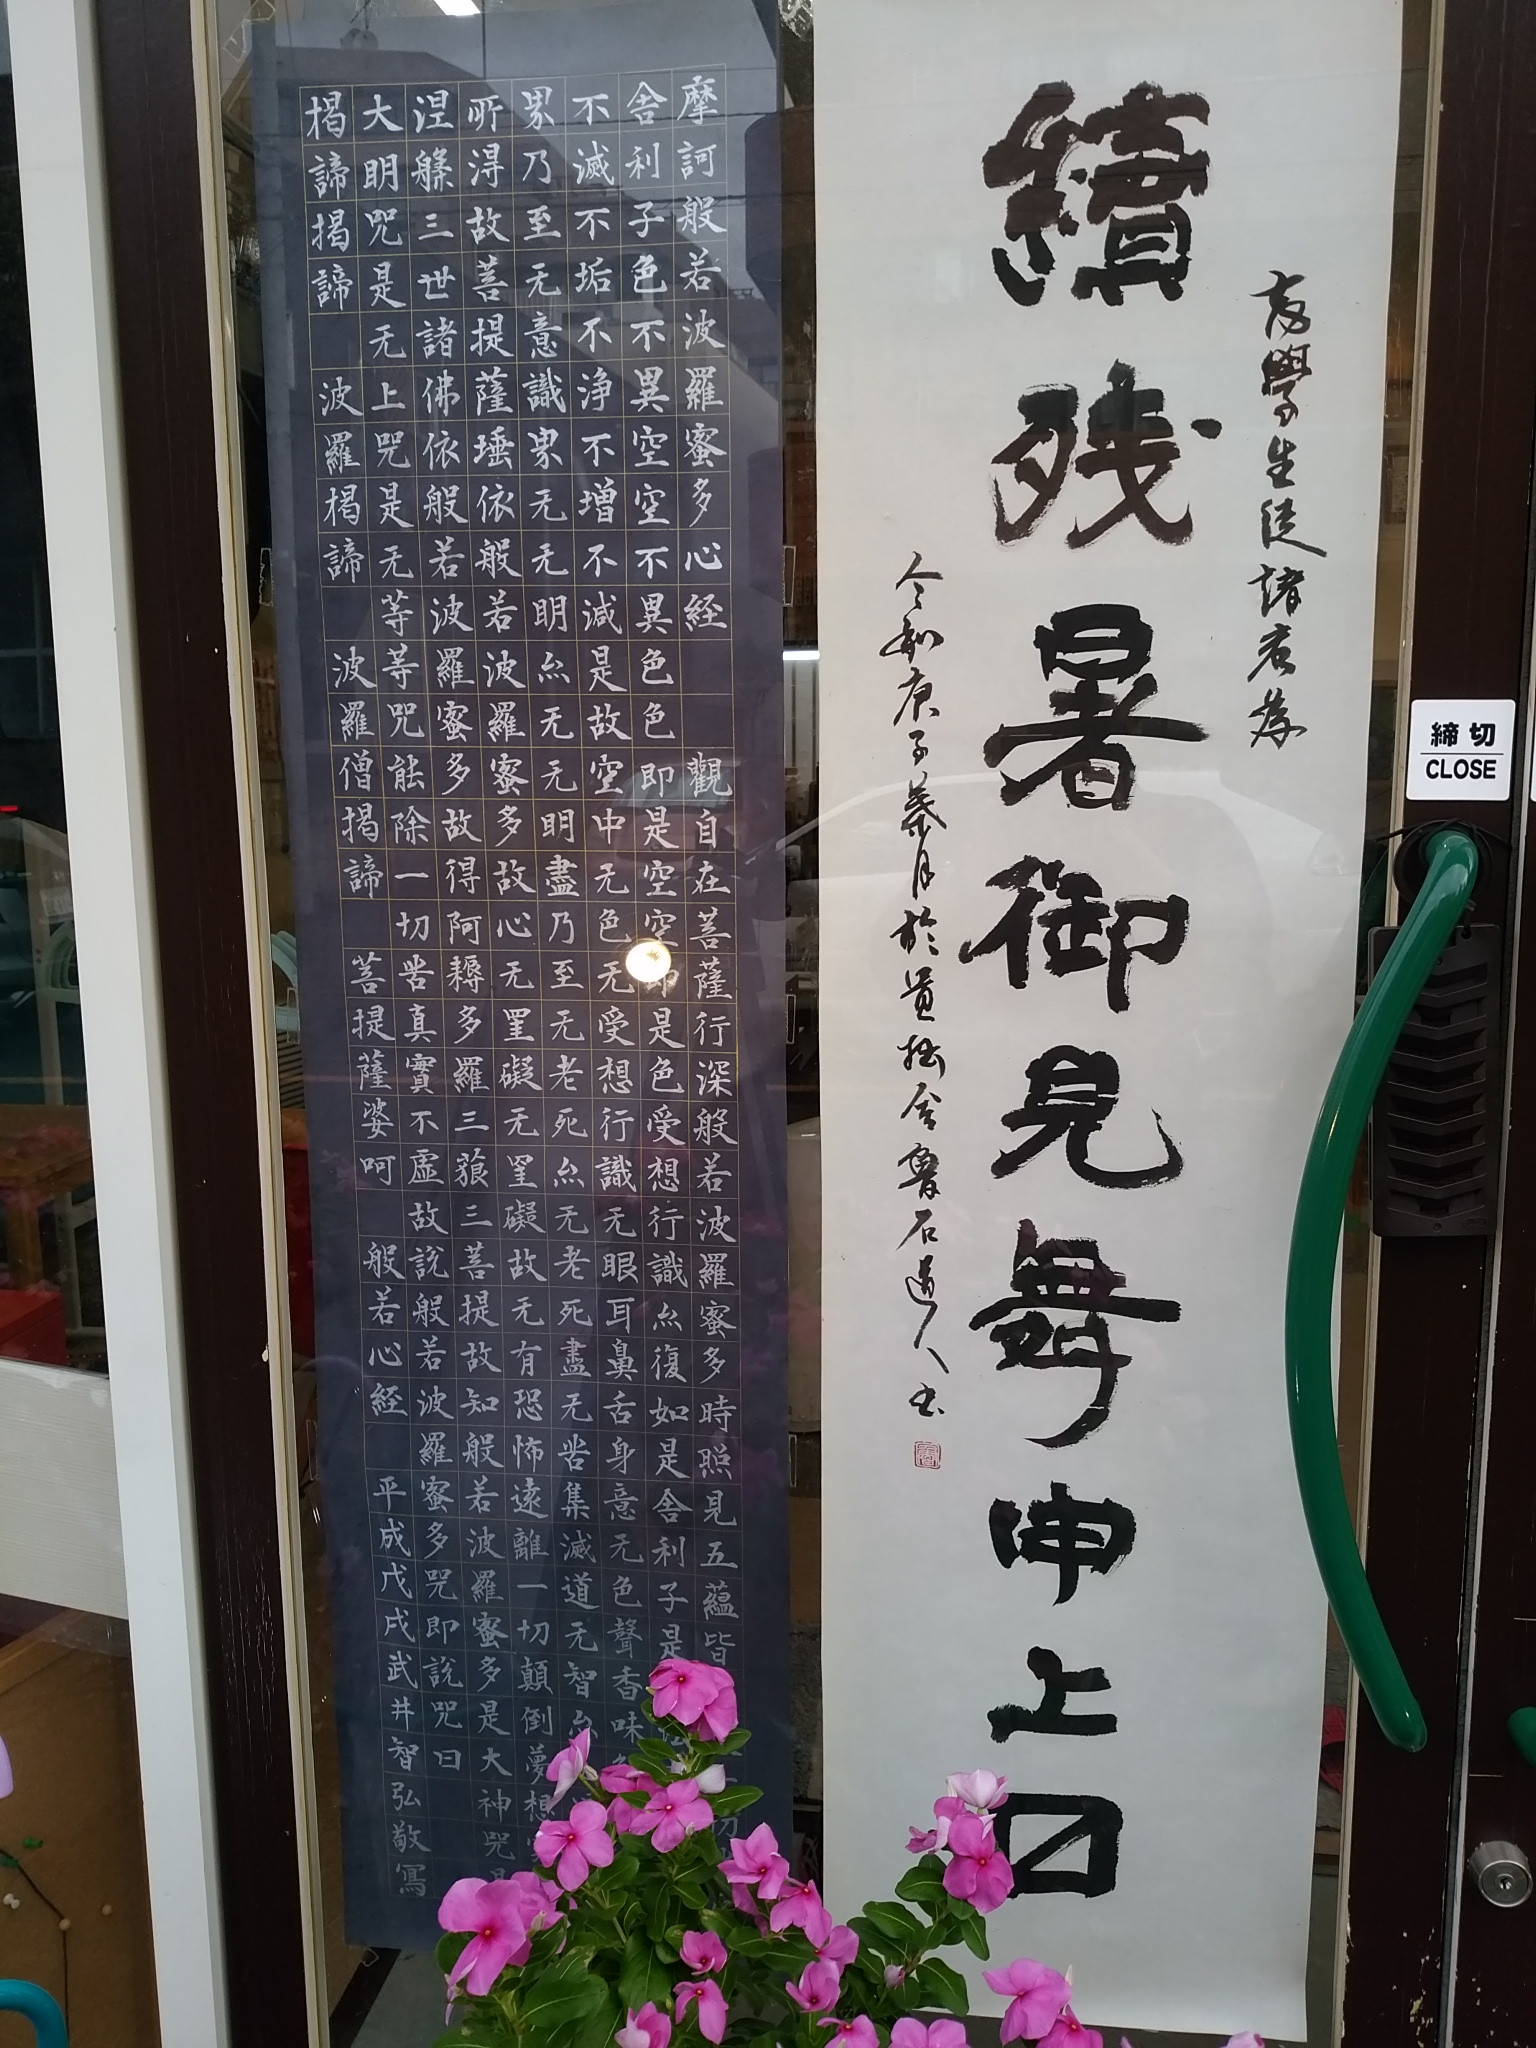 學生徒諸君為
續残暑御見舞申上〼
令和庚子葉月於舎魯石道人書
締切
CLOSE
摩訶般若波羅蜜多心経　觀自在菩薩行深般若波羅蜜多時照見五蘊皆切
舎利子色不異空空不異色色即是空空即是色受想行識亦復如是舎利子是
不滅不垢不浄不増不減是故空中无色无受想行識无眼耳鼻舌身意无色聲香味
界乃至无意識界无无明亦无无明盡乃至无老死亦无老死盡无苦集滅道无智亦
所得故菩提薩埵依般若波羅蜜多故心无罣礙无罣礙故无有恐怖遠離一切顛倒夢想
涅槃三世諸佛依般若波羅蜜多故得阿耨多羅三藐三菩提故知般若波羅蜜多是大神咒是
大明咒是无上咒是无等等咒能除一切苦真實不虚故說般若波羅蜜多咒即說咒曰
揭諦揭諦　波羅揭諦　波羅僧揭諦　菩提薩婆呵　般若心経　平成戊戌武井智弘敬寫